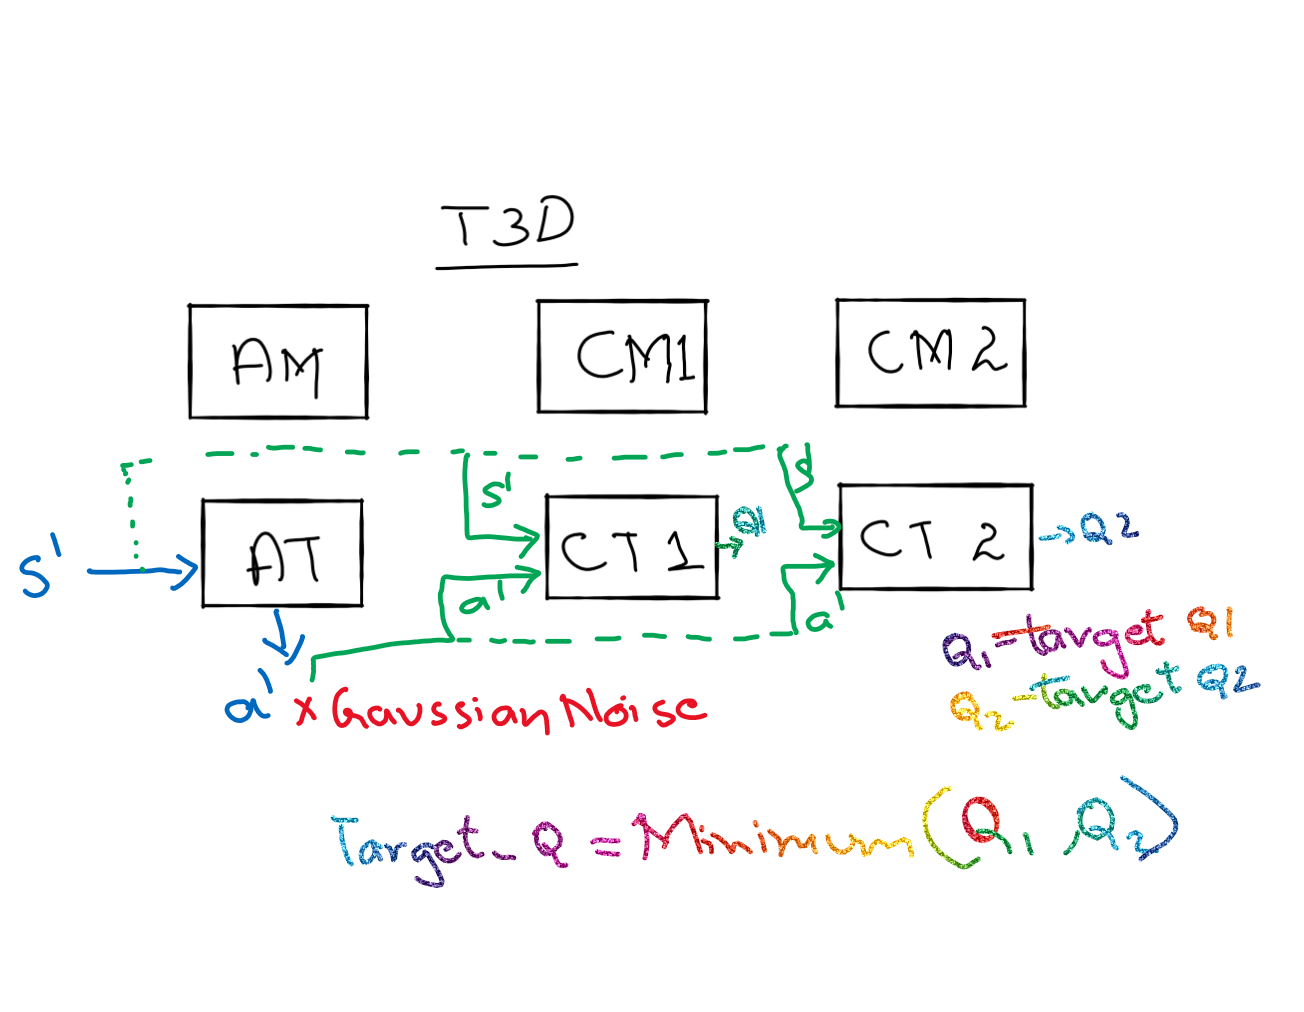 T3D
AM
CM1
CM2
s'
s'
AT
CT1
Q1
CT2
Q2
s'
a'
a'
a' x Gaussian Noise
Q1 - target Q1
Q2 - target Q2
Target_Q = Minimum (Q1, Q2)